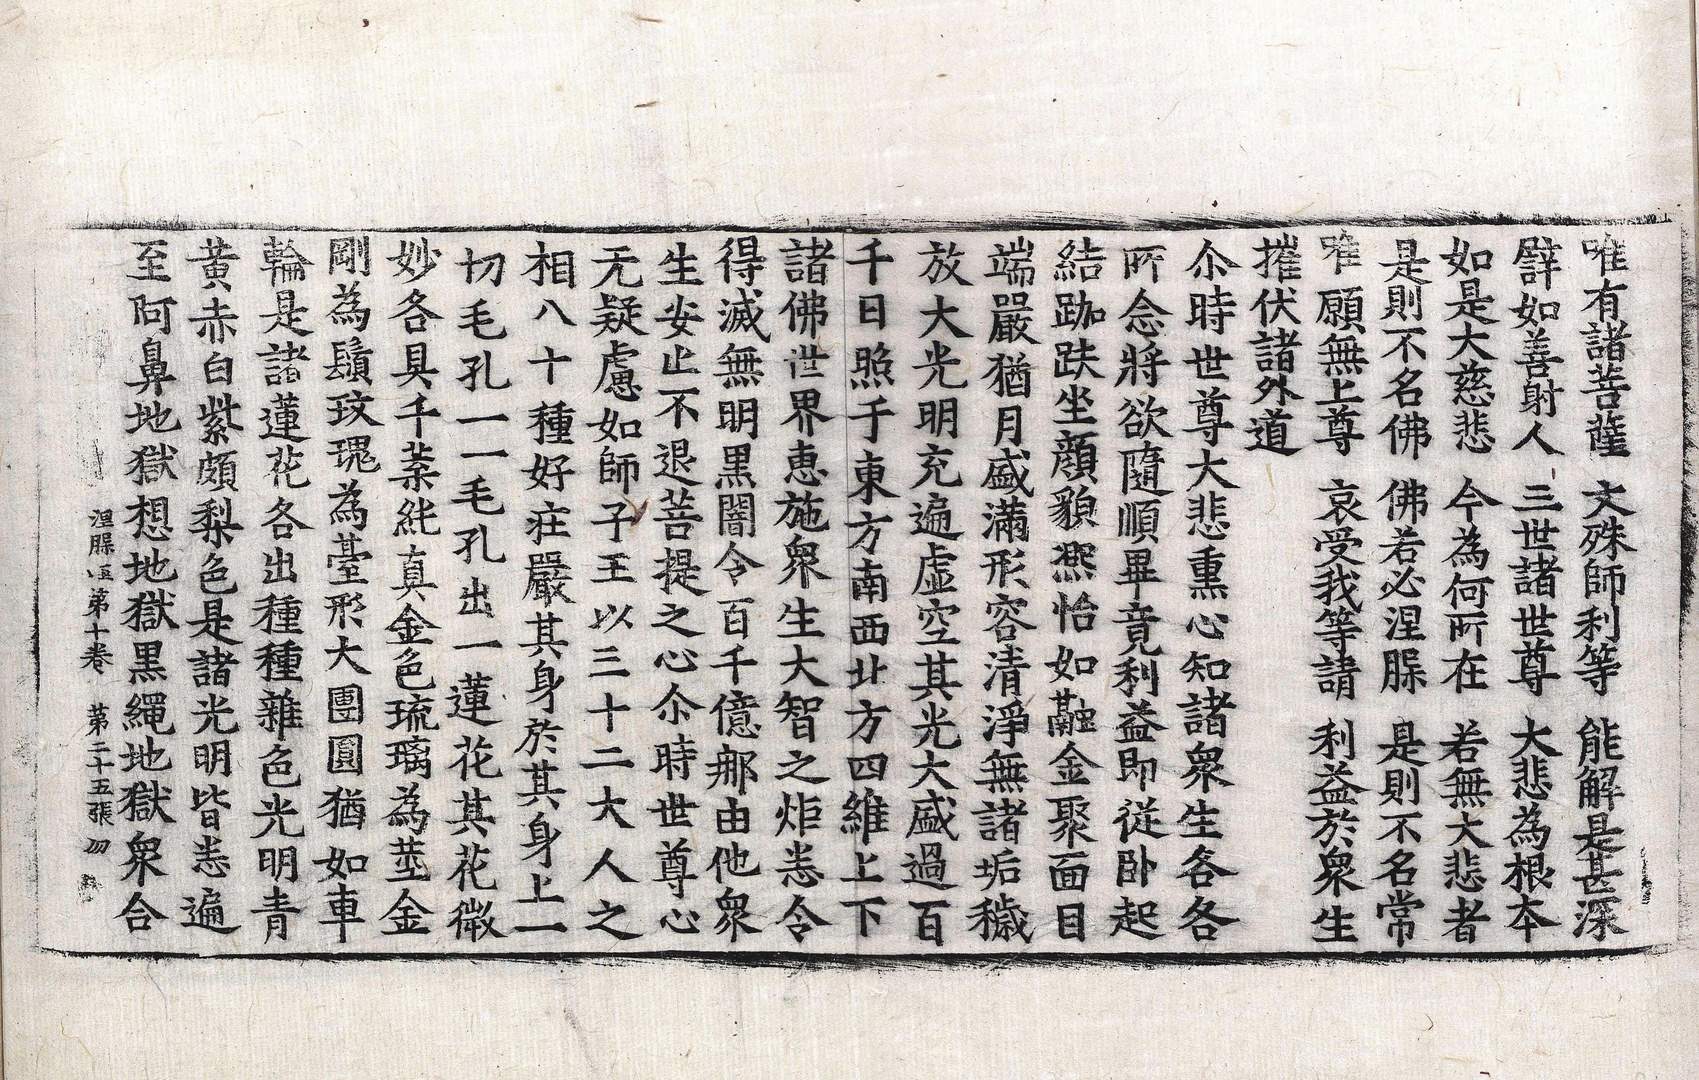 唯有諸菩薩　文殊師利等　能解是甚深
譬如善射人　三世諸世尊　大悲為根本
如是大慈悲　今為何所在　若無大悲者
是則不名佛　佛若必涅槃　是則不名常
唯願無上尊　哀受我等請　利益於衆生
摧伏諸外道
尒時世尊大悲熏心知諸衆生各各
所念將欲隨順畢竟利益即從卧起
結跏趺坐顔貌熈怡如融金聚面目
端嚴猶月盛滿形容清淨無諸垢穢
放大光明充遍虛空其光大盛過百
千日照于東方南西北方四維上下
諸佛世界惠施衆生大智之炬悉令
得滅無明黒闇令百千億那由他衆
生安止不退菩提之心尒時世尊心
无疑慮如師子王以三十二大人之
相八十種好莊嚴其身於其身上一
切毛孔一一毛孔出一蓮花其花微
妙各具千葉純真金色琉璃為莖金
剛為鬚玫瑰為臺形大團圓猶如車
輪是諸蓮花各出種種雜色光明青
黃赤白紫頗梨色是諸光明皆悉遍
至阿鼻地獄想地獄黒繩地獄衆合
涅槃經第十卷　第二十五張